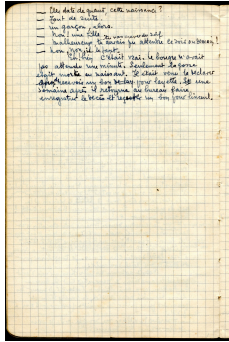 — Elle date de quand, cette naissance ?
— Tout de suite.
— un garçon, alors.
— Non ! une fille
— Malheureux ! tu aurais pu attendre le
— Non, mon
C'était vrai. le bougre n'avait
pas attendu une minute. Seulement la gosse
était morte en naissant. Il était venu la déclarer
recevoir un bon pour layette. Et une
semaine après il retourna au bureau faire
enregistrer le décès et un bon pour linceul.